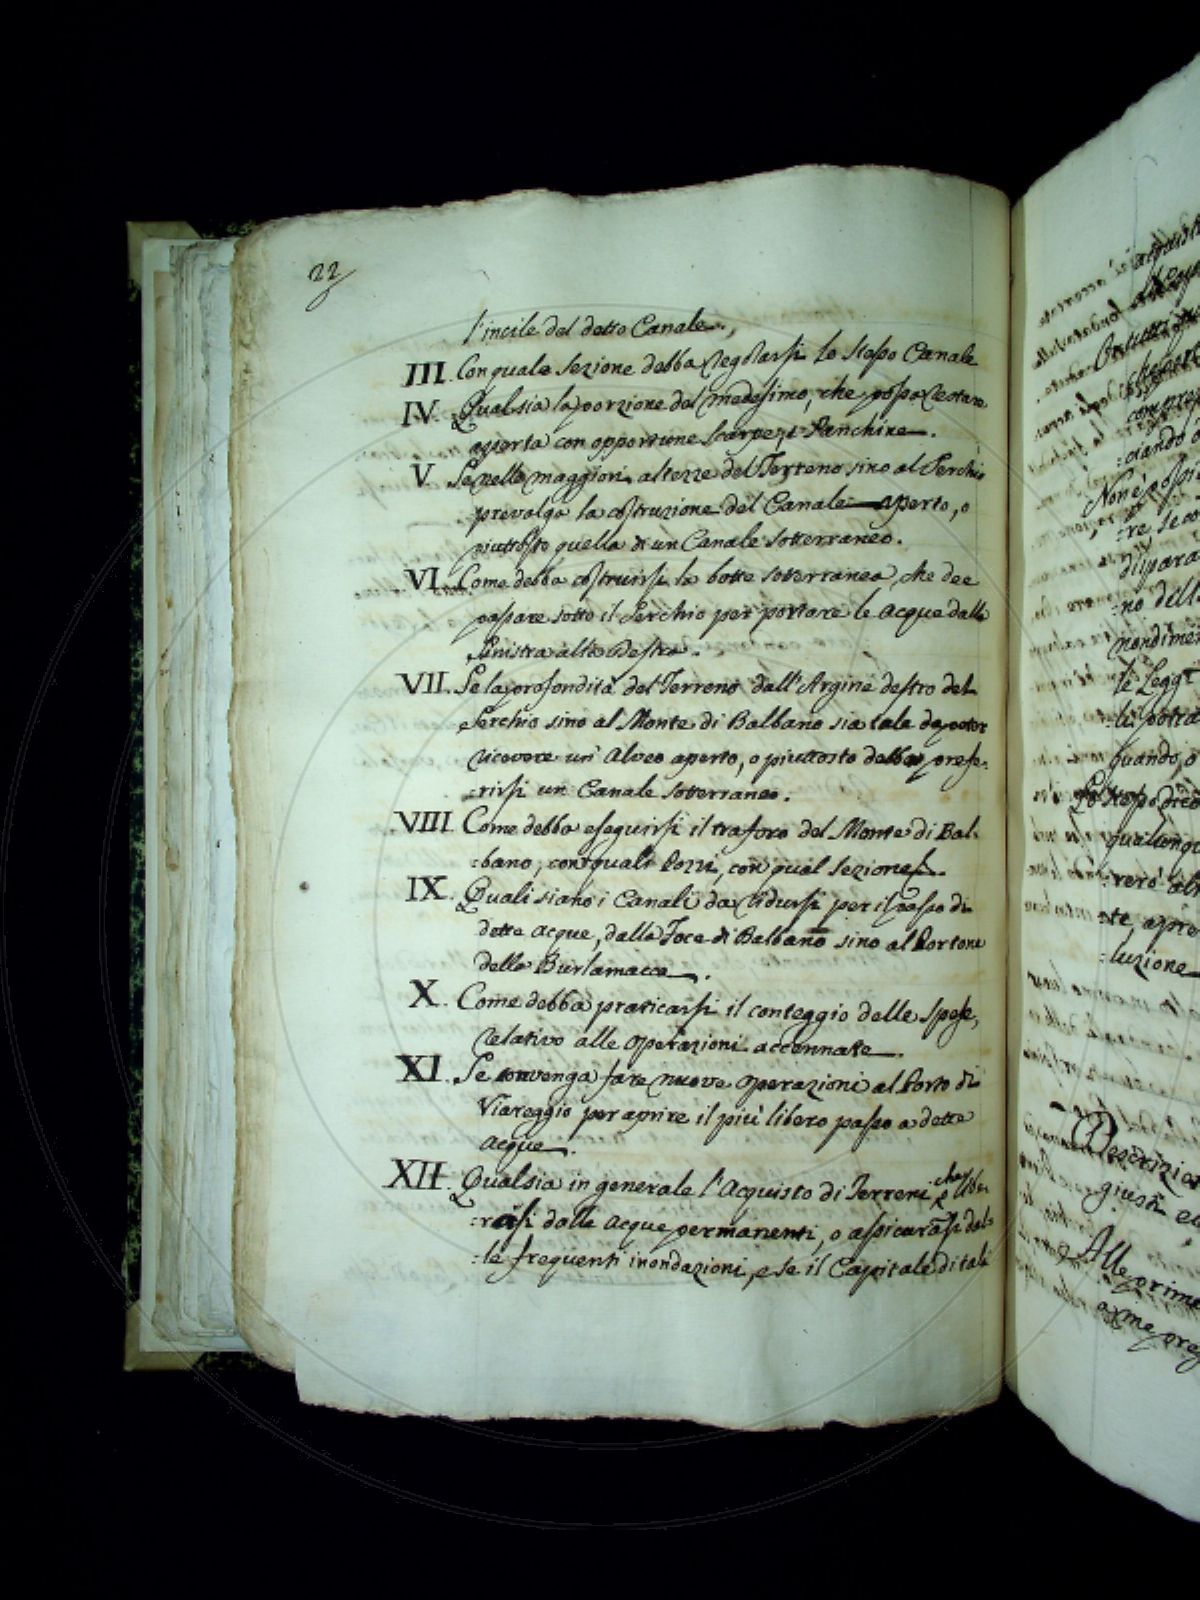 22
l'incile del detto Canale.
III. Con quale sezione debba regolarsi lo stesso Canale
IV. Qual sia la porzione del medesimo, che possa restare
aperta con opportune scarpe, e Panchine.
V. Se nelle maggiori altezze del Terreno sino al Serchio
prevalga la costruzione del Canale aperto, o
piuttosto quella di un Canale sotterraneo.
VI. Come debba costruirsi la botte sotterranea, che dee
passare sotto il Serchio per portare le acque dalla
Sinistra alla Destra.
VII. Se la profondità del Terreno dall'Argine destro del
Serchio sino al Monte di Balbano sia tale da poter
ricevere un' Alveo aperto, o piuttosto debba prefe-
:rirsi un Canale sotterraneo.
VIII. Come debba eseguirsi il traforo del Monte di Bal-
:bano, con quali Pozzi, con qual sezione.
IX. Quali siano i Canali da ridursi per il passo di
dette acque, dalla Foce di Balbano sino al Portone
della Burlamacca.
X. Come debba praticarsi il conteggio delle spese,
relativo alle operazioni accennate.
XI. Se convenga fare nuove operazioni al Porto di
Viareggio per aprire il più libero passo a dette
acque.
XII. Qual sia in generale l'Acquisto di Terreni che libe-
:rasi dalle acque permanenti, o assicurasi dal-
:le frequenti inondazioni, e se il Capitale di tali
acquista
compres
:ciando
Non è possi
:re se co
di ipara
:no dell
nondime
le Legg
li potra
quando, o
Lo stesso dico
qualunqu
:rerò al
:te, apre
:luzione
Descrizio
giusti
Alle prime